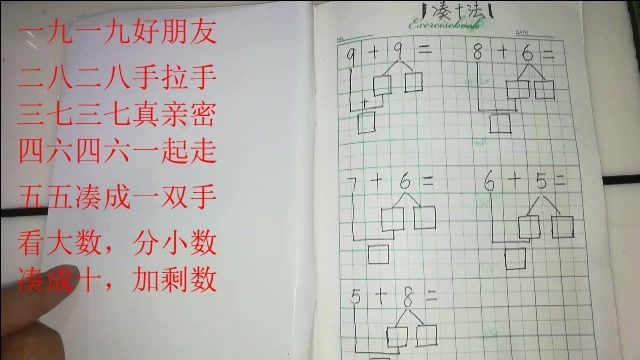 一九一九好朋友
二八二八手拉手
三七三七真亲密
四六四六一起走
五五凑成一双手
看大数，分小数
凑成十，加剩数
凑十法
Exercisebook
NO.
DATE
9 + 9 =
8 + 6 =
+
7 + 6 =
6 + 5 =
5 + 8 =